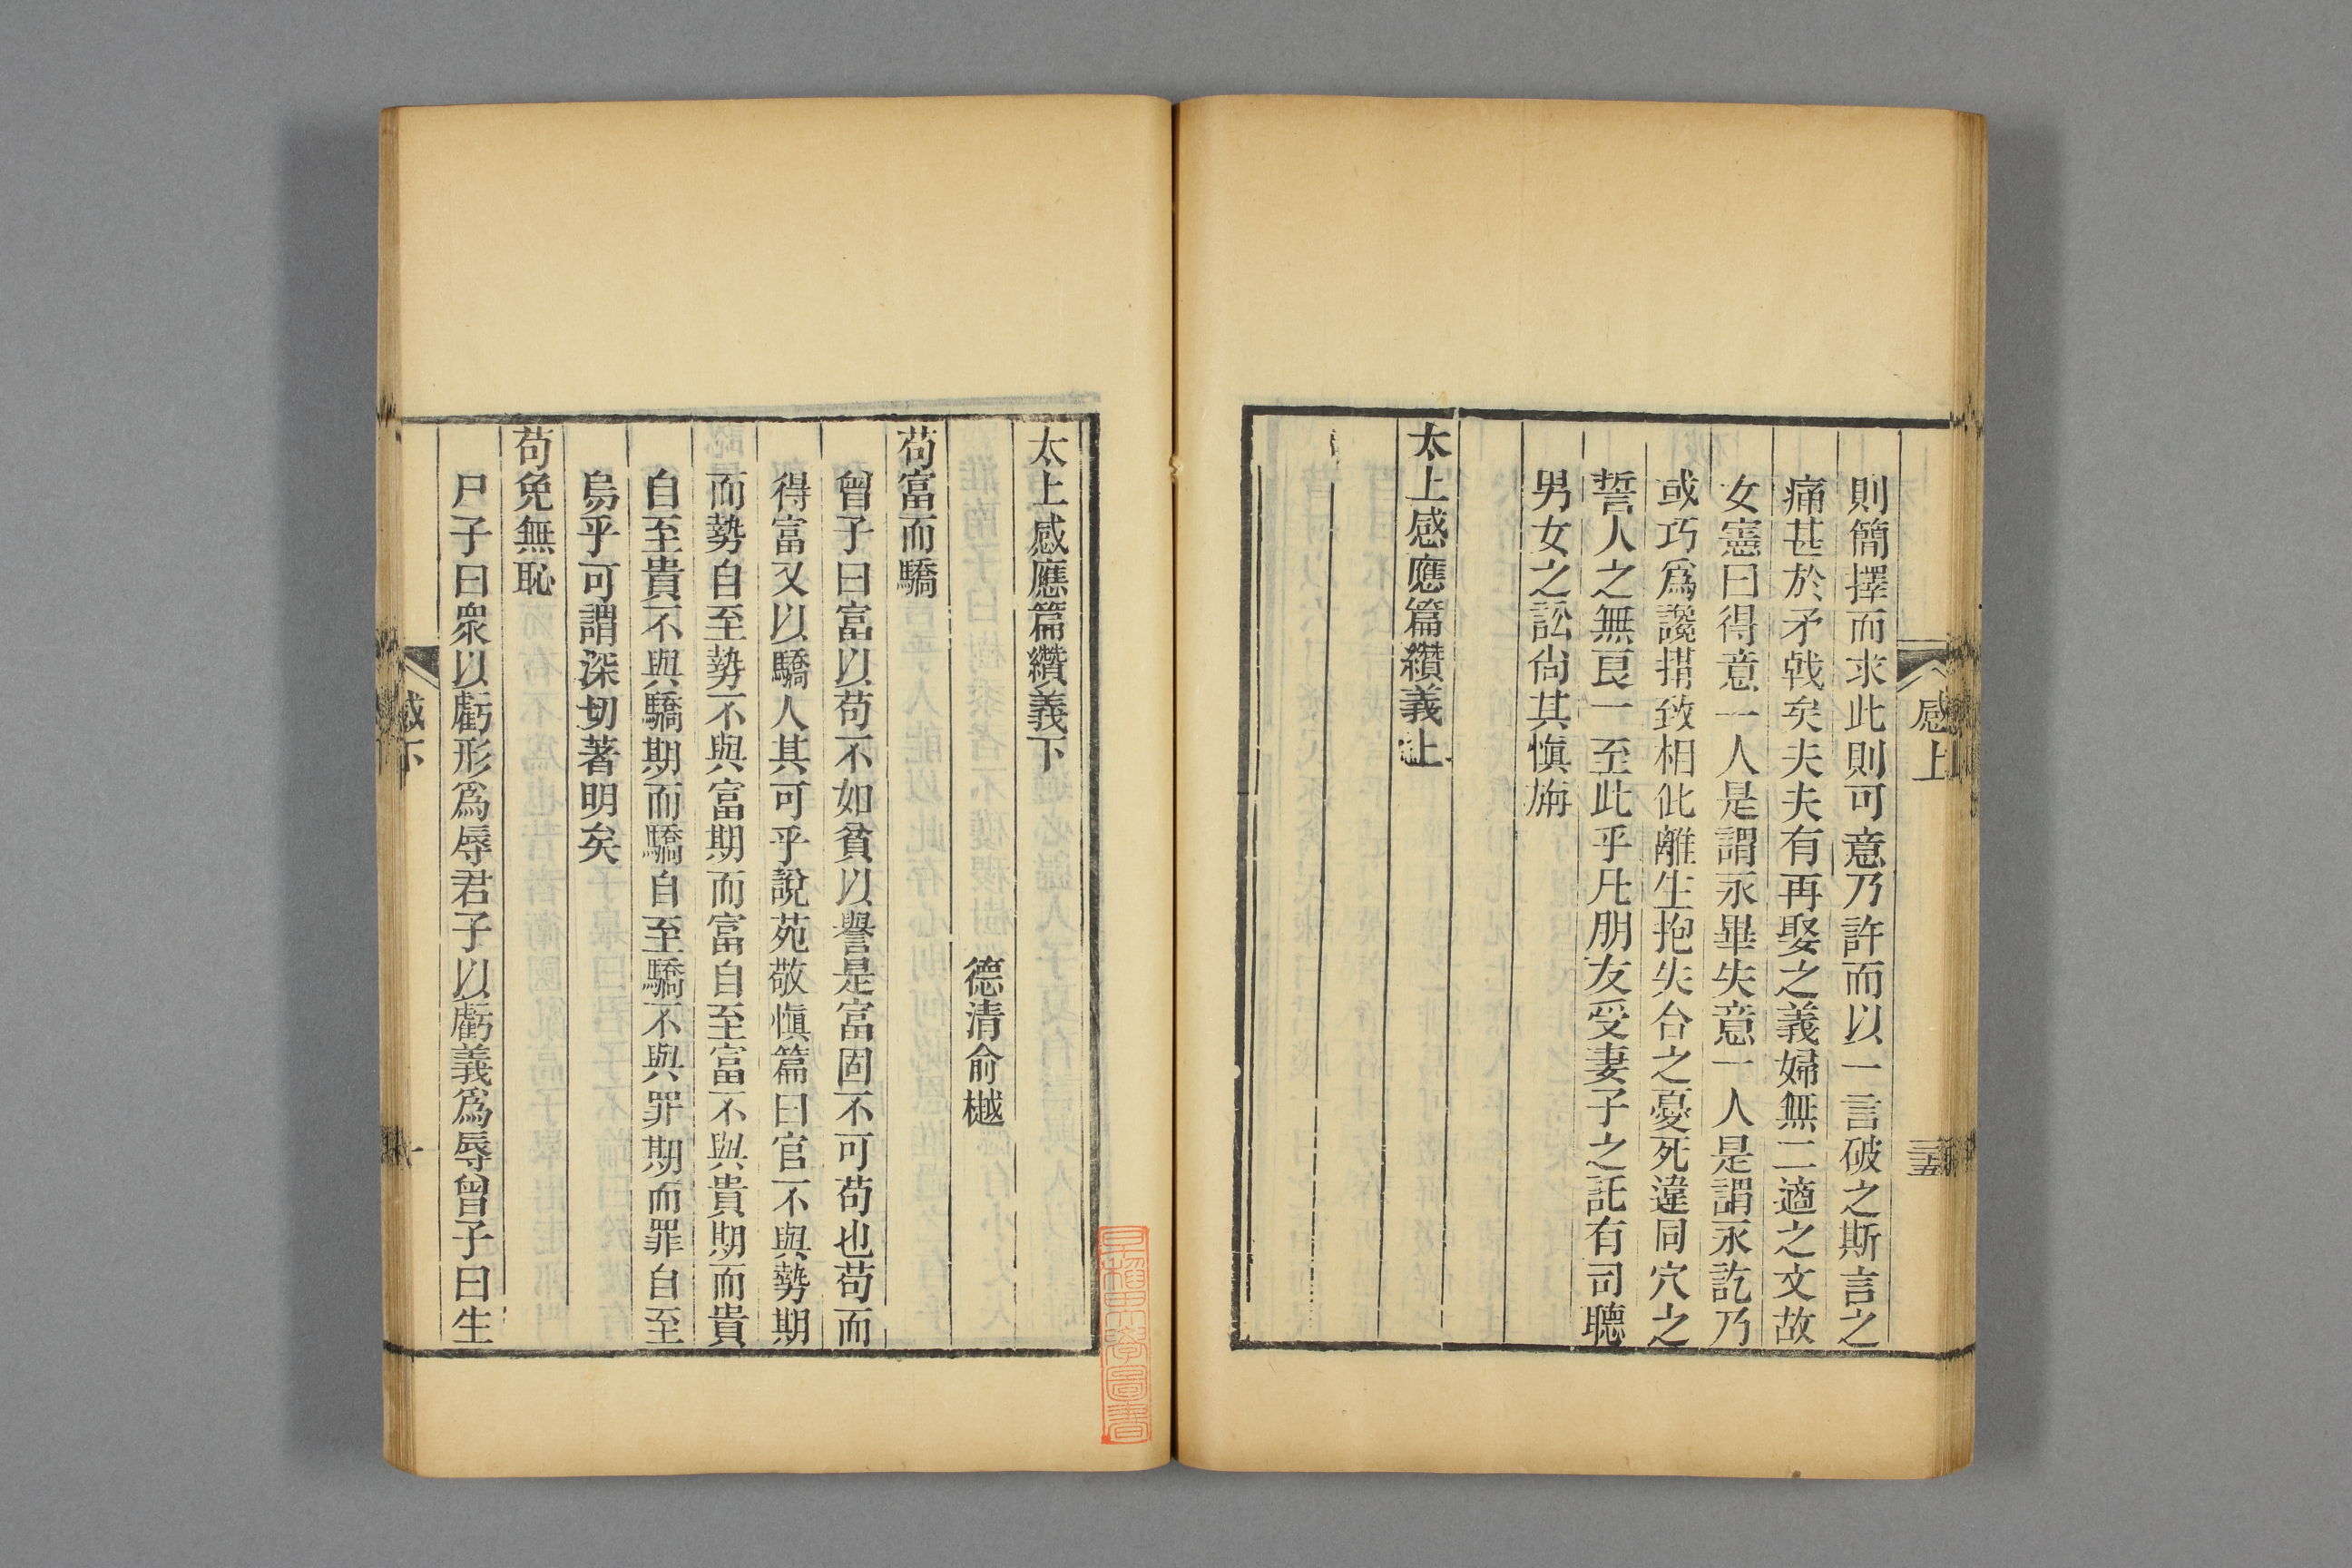 感上
三五
則簡擇而求此則可意乃許而以一言破之斯言之
痛甚於矛戟矣夫夫有再娶之義婦無二適之文故
女憲曰得意一人是謂永畢失意一人是謂永訖乃
或巧爲讒搆致相仳離生抱失台之憂死違同穴之
誓人之無良一至此乎凡朋友受妻子之託有司聽
男女之訟尙其愼旃
太上感應篇纘義上
太上感應篇纘義下
德清俞樾
苟富而驕
曾子曰富以苟不如貧以譽是富固不可苟也苟而
得富又以驕人其可乎說苑敬愼篇曰官不與勢期
而勢自至勢不與富期而富自至富不與貴期而貴
自至貴不與驕期而驕自至驕不與罪期而罪自至
烏乎可謂深切著明矣
苟免無恥
尸子曰衆以虧形爲辱君子以虧義爲辱曾子曰生
感下
一